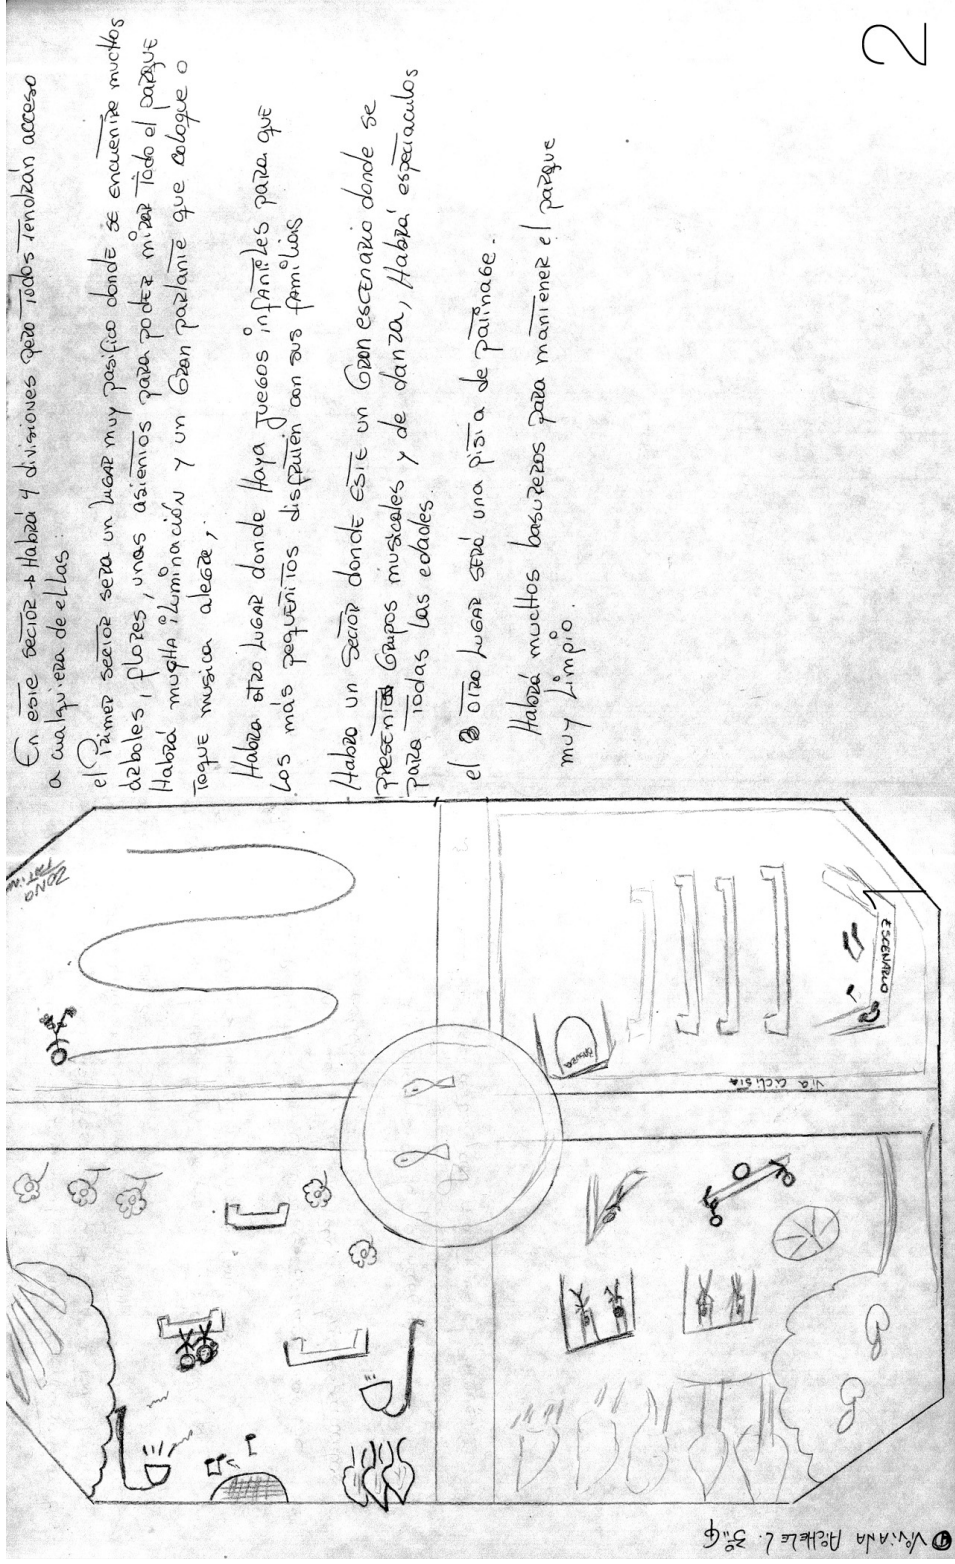 En este sector → Habrá 4 divisiones pero todos tendrán acceso
a cualquiera de ellas
el Primer sector sera un lugar muy pasifico donde se encuentre muchos
árboles, flores, unos asientos para poder mirar todo el parque
Habrá mucha iluminación y un Gran parlante que coloque o
toque musica alegre,
Habra otro lugar donde Haya juegos infantiles para que
los más pequeñitos disfruten con sus familias
Habra un sector donde este un Gran escenario donde se
presenten Grupos musicales y de danza, Habrá espectaculos
para todas las edades.
el otro lugar será una pista de patinage.
Habrá muchos basureros para mantener el parque
muy limpio.
2
ZONA
ESCENARIO
via ciclista
Viviana Pichele L. 3º"G"